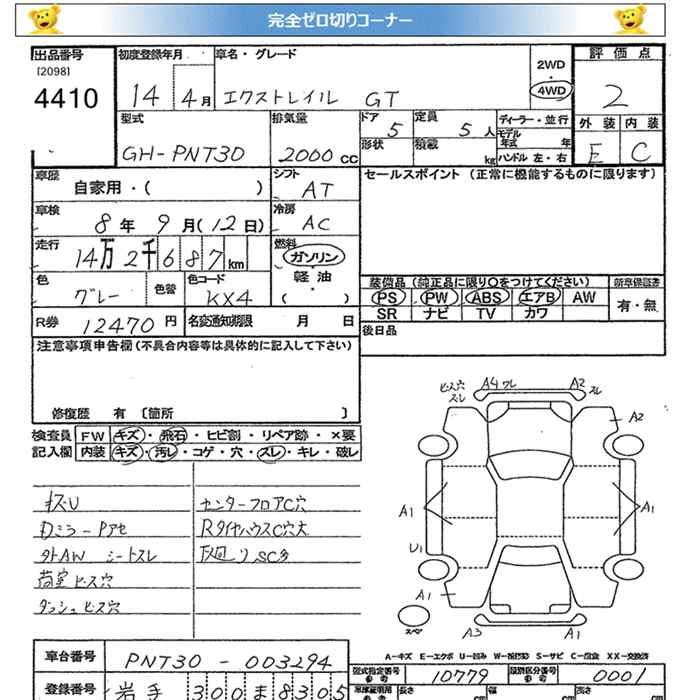 完全ゼロ切りコーナー
出品番号 初度登録年月 車名・グレード 2WD 評価点
[2098]
4410 14 4月 エクストレイル GT 4WD 2
型式 排気量 ドア 5 定員 5人 ディーラー・並行 外装 内装
モデル年式 年
GH-PNT30 2000 CC 形状 積載 kg ハンドル 左・右 E C
車歴 自家用・( ) シフト AT セールスポイント (正常に機能するものに限ります)
車検 8年 9月(12日) 冷房 AC
走行 14万2千687km 燃料 ガソリン
軽油
( )
色 グレー 色替 色コード KX4 装備品 (純正品に限り○をつけてください) 新車保証書
PS PW ABS エアB AW 有・無
SR ナビ TV カワ
R券 12470円 名変通知期限 月 日 後日品
注意事項申告欄 (不具合内容等は具体的に記入して下さい)
修復歴 有 〔箇所 〕
検査員 FW キズ・飛石・ヒビ割・リペア跡・×要
記入欄 内装 キズ・汚レ・コゲ・穴・スレ・キレ・破レ
キズU センターフロアC穴
Dミラーアセ RタイヤハウスC穴大
外AW シートスレ 下廻りSC多
荷室ビス穴
ダッシュビス穴
ビス穴 スレ A4 ワレ A2 スレ
A2
A1 A1
U1
A1
スペア A3 A1
A-キズ E-エクボ U-凹み W-波(補修) S-サビ C-腐食 XX-交換済
車台番号 PNT30-003294 型式指定番号 参考 10779 類別区分番号 参考 0001
登録番号 岩手 300 ま 8305 長さ cm 幅 cm 高さ cm